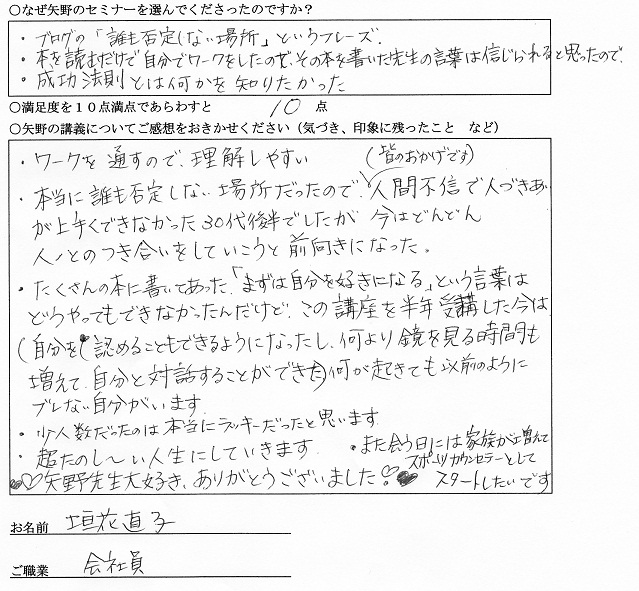 ○なぜ矢野のセミナーを選んでくださったのですか？
・ブログの「誰も否定しない場所」というフレーズ.
・本を読むだけで自分でワークをしたので、その本を書いた先生の言葉は信じられると思ったので.
・成功法則とは何かを知りたかった
○満足度を１０点満点であらわすと 10 点
○矢野の講義についてご感想をおきかせください（気づき、印象に残ったこと など）
・ワークを通すので、理解しやすい （皆のおかげです）
・本当に誰も否定しない場所だったので、人間不信で人づきあい
が上手くできなかった30代後半でしたが 今はどんどん
人とのつき合いをしていこうと前向きになった。
・たくさんの本に書いてあった、「まずは自分を好きになる」という言葉は
どうやってもできなかったんだけど、この講座を半年受講した今は
（自分を認めることもできるようになったし、何より鏡を見る時間も
増えて、自分と対話することができた）何が起きても以前のように
ブレない自分がいます
・少人数だったのは本当にラッキーだったと思います
・超たのし〜い人生にしていきます
・また会う日には家族が増えて
スポーツカウンセラーとして
スタートしたいです
♡矢野先生大好き、ありがとうございました！♡
お名前 垣花直子
ご職業 会社員